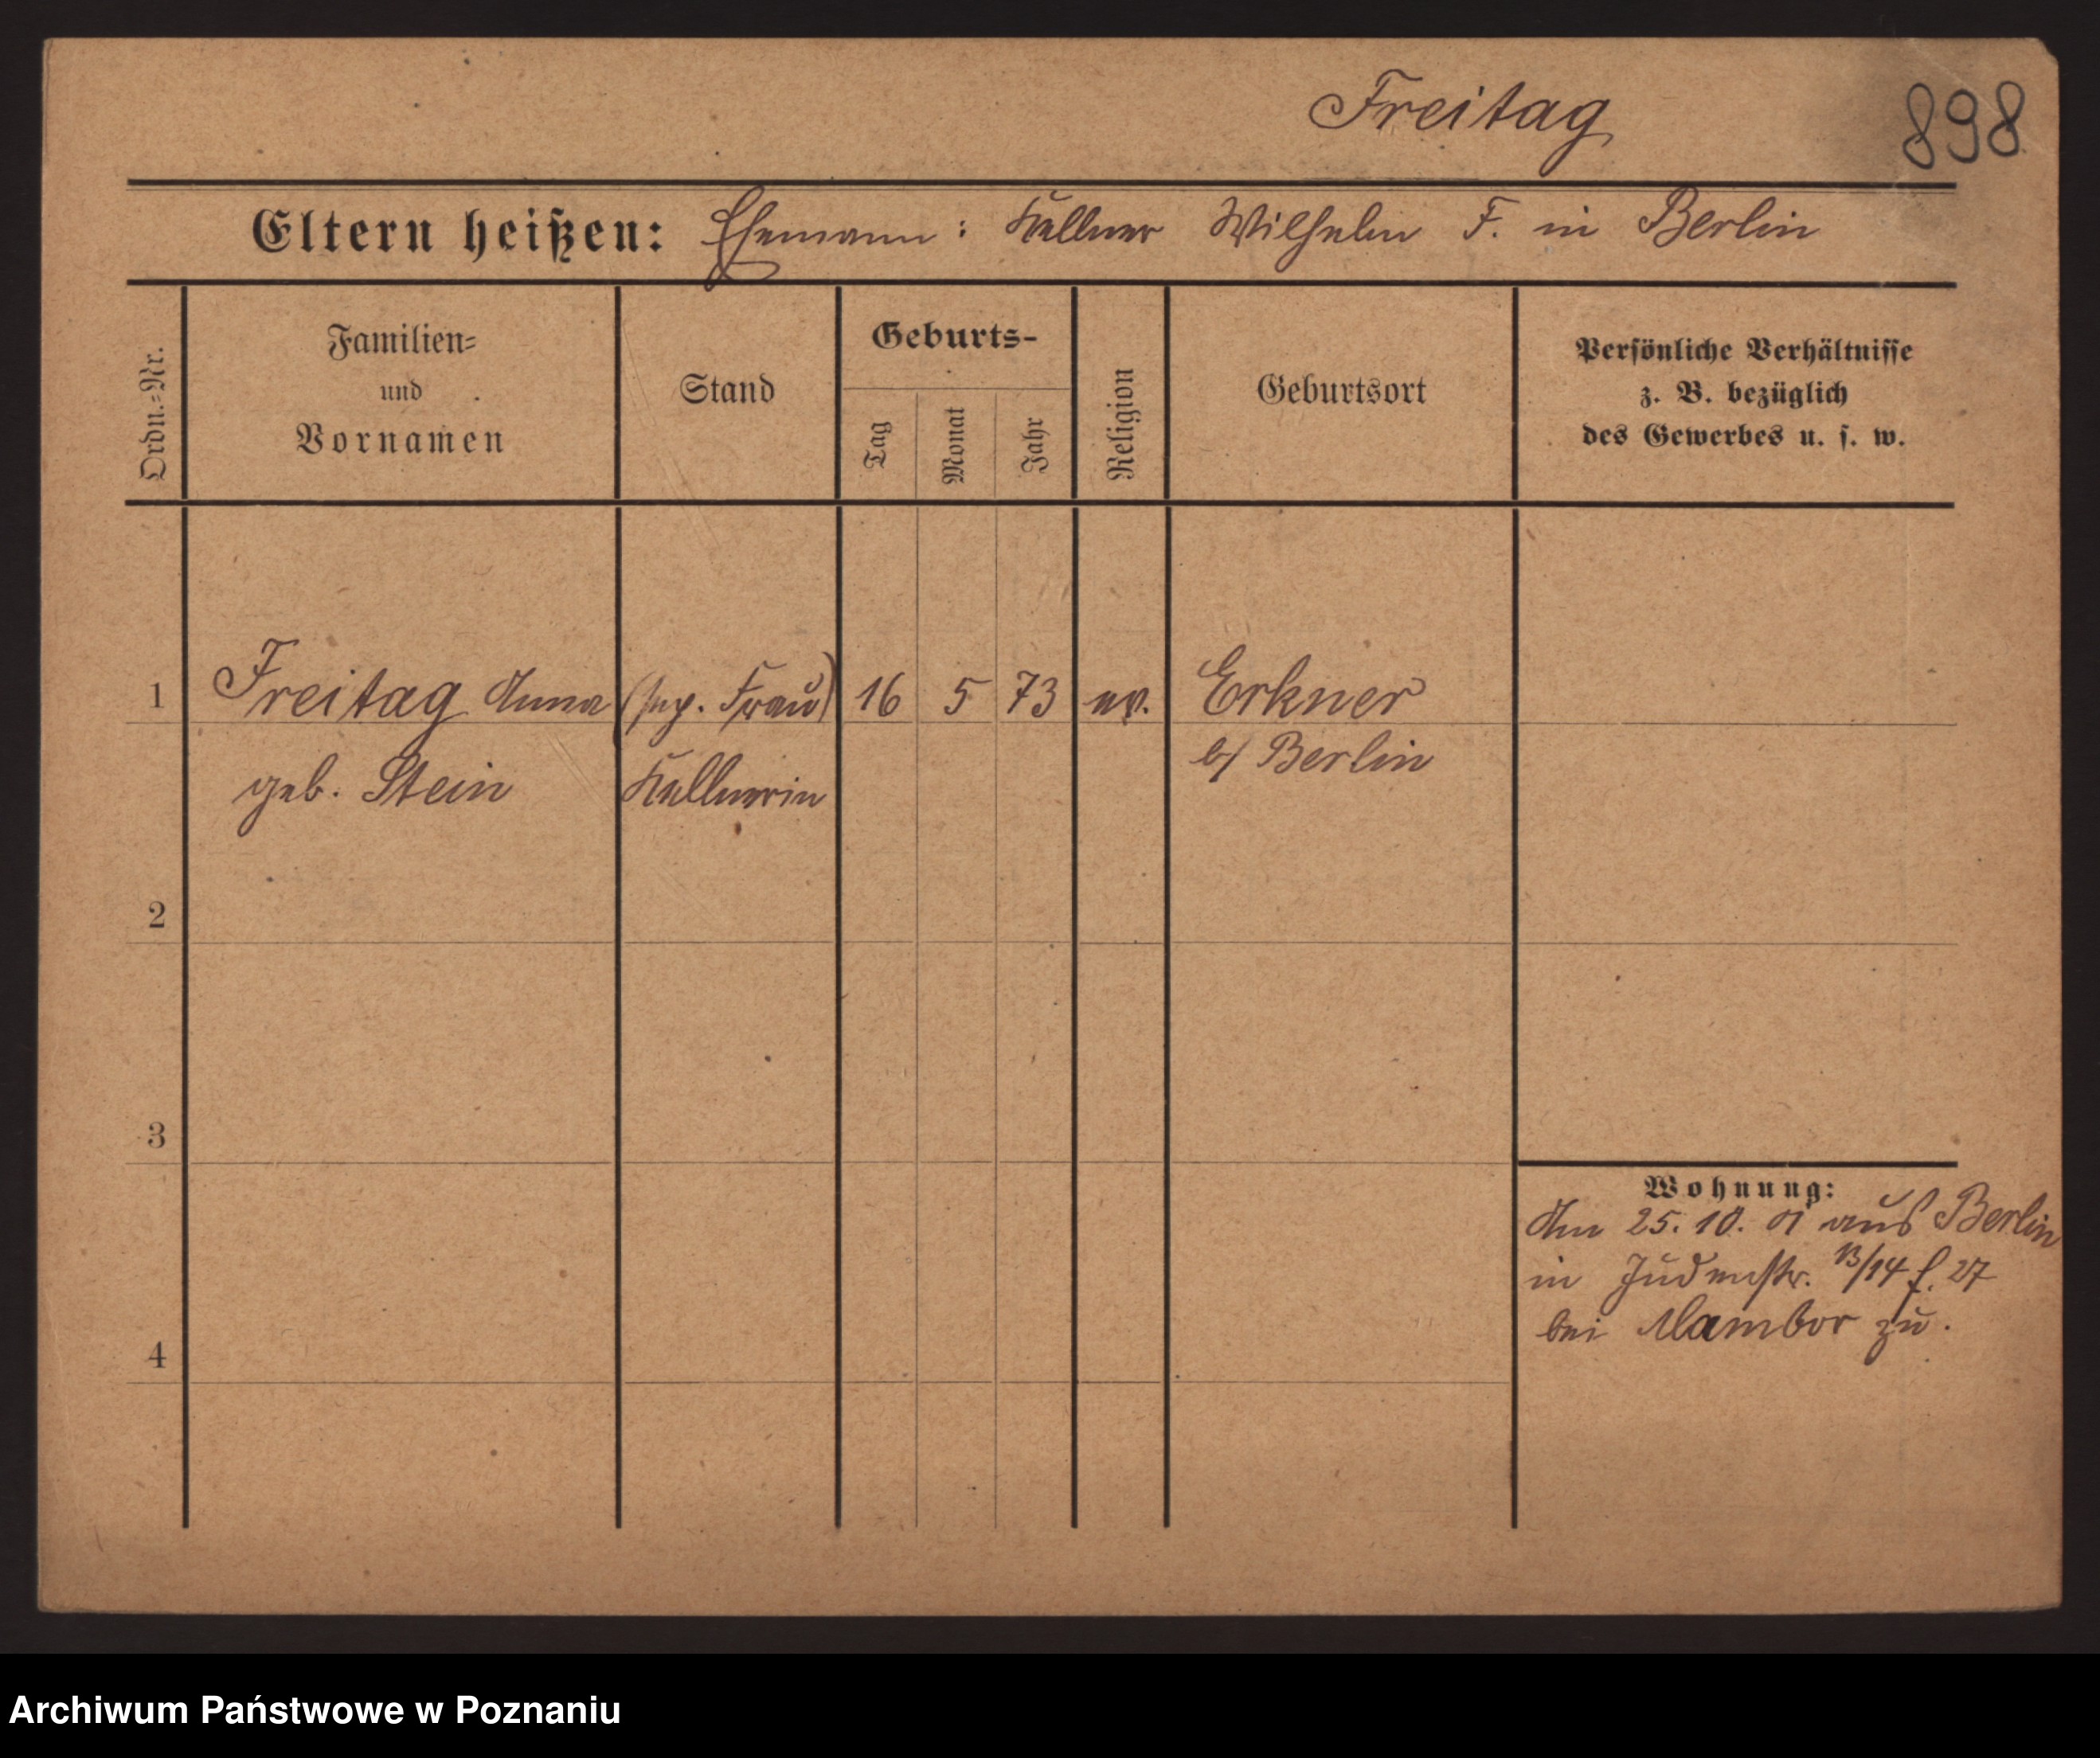 Freitag
898
Eltern heißen: Ehemann: Kellner Wilhelm F. in Berlin
Ordn.-Nr.
Familien-
und
Vornamen
Stand
Geburts-
Tag
Monat
Jahr
Religion
Geburtsort
Persönliche Verhältnisse
z. B. bezüglich
des Gewerbes u. s. w.
1 Freitag Anna (sep. Frau) 16 5 73 ev. Erkner
b/ Berlin
geb. Stein Kellnerin
2
3
Wohnung:
Am 25. 10. 01 aus Berlin
in Judenstr. 13/14 f. 27
bei Mambor zu.
4
Archiwum Państwowe w Poznaniu